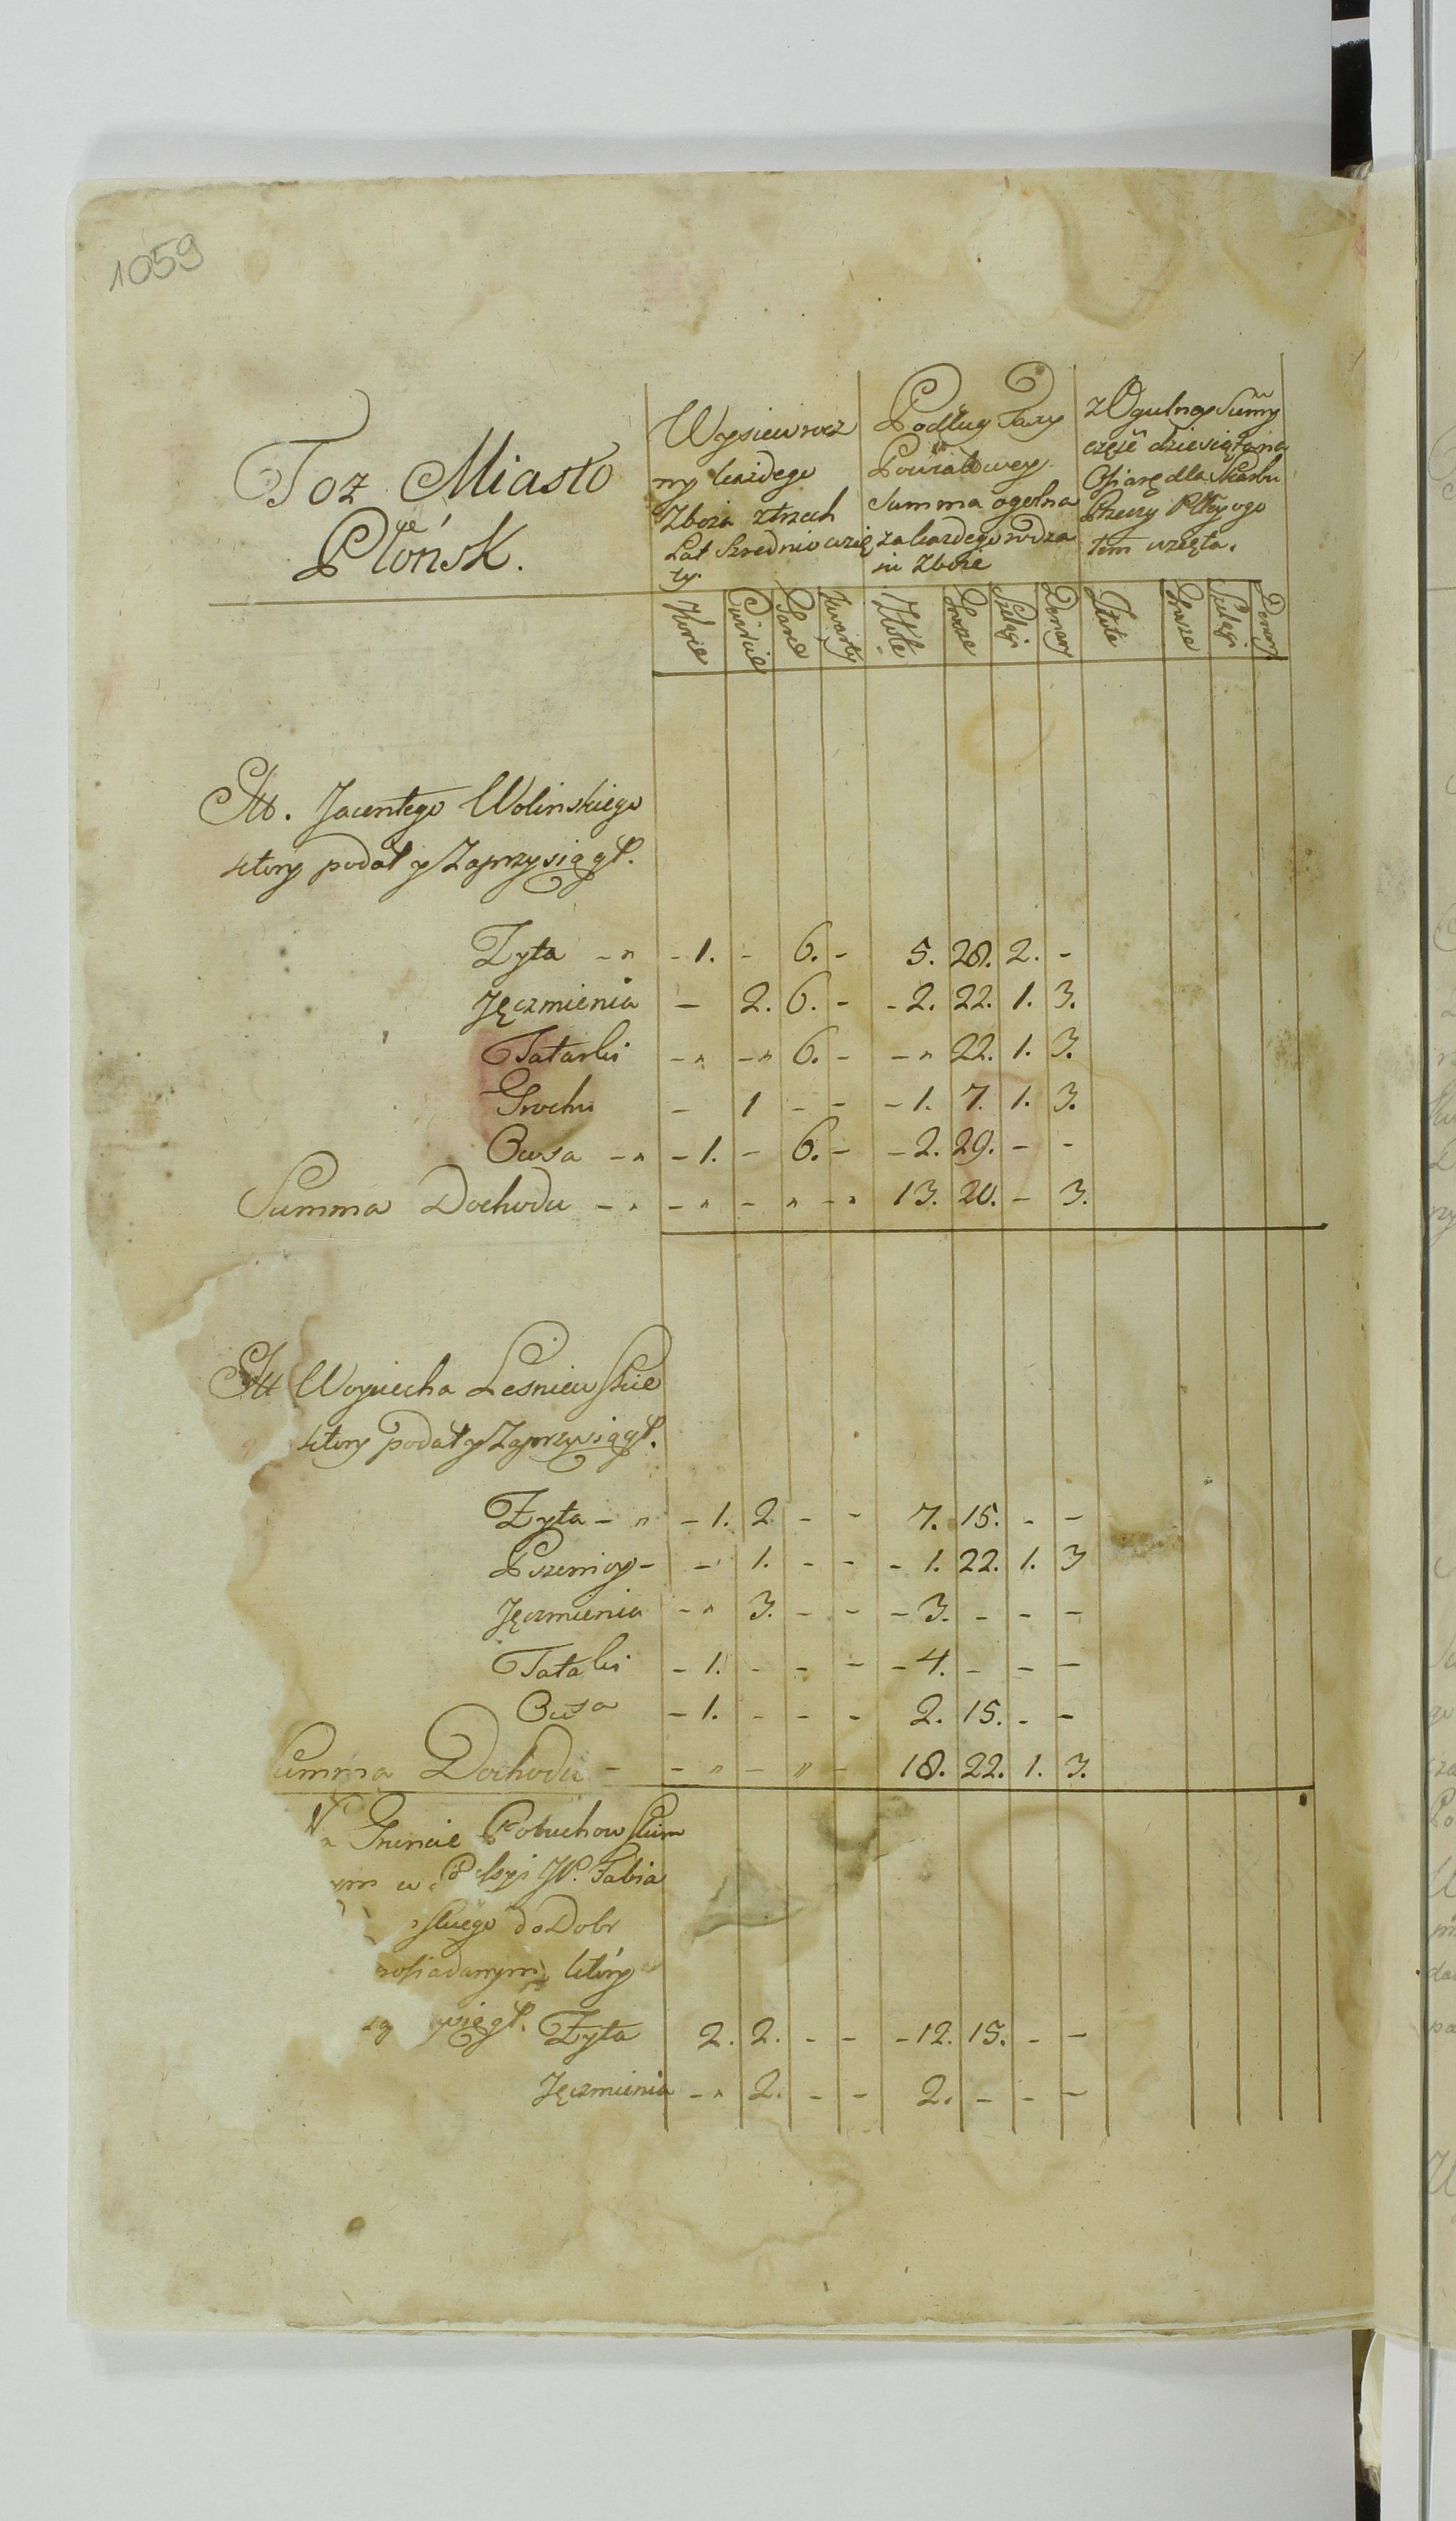 1059
Toz Miasto
Płońsk.
Wysiew rocz
ny każdego
Zboża z trzech
Lat Srednio wzię
ty.
Podług Taxy
Powiatowey
Summa ogolna
za każdego rodza
iu Zboże
z Ogulney Sum̃y
częśc dziesiąta na
Ofiarę dla Skarbu
Rzeczy Pltey ogo
łem wzięta.
Korce Cwircie Garce Kwarty Złote Grosze Szelągi Denary Złote Grosze Szelągi Denary
Jacentego Wolinskiego
ktory podał y Zaprzysiągł.
Zyta - " - 1. - 6. - 5. 28. 2. -
Jęczmienia - 2. 6. - - 2. 22. 1. 3.
Tatarki - " - " 6. - - " 22. 1. 3.
Grochu - 1 - - - 1. 7. 1. 3.
Owsa - " - 1. - 6. - - 2. 29. - -
Summa Dochodu - " - " - " - " 13. 20. - 3.
Woyciecha Lesniewskie
go ktory podał y Zaprzysiągł.
Zyta - " - 1. 2. - - 7. 15. - -
Pszenicy - - " 1. - - - 1. 22. 1. 3
Jęczmienia - " 3. - - - 3. - - -
Tatarki - 1. - - - - 4. - - -
Owsa - 1. - - - 2. 15. - -
Summa Dochodu - - " - " - 18. 22. 1. 3.
Na Gruncie Pobuchowskim
ym w JP. Fabia
skiego do Dobr
posiadanym, ktory
ysiągł. Zyta 2. 2. - - - 12. 15. - -
Jęczmienia - " 2. - - 2. - - -